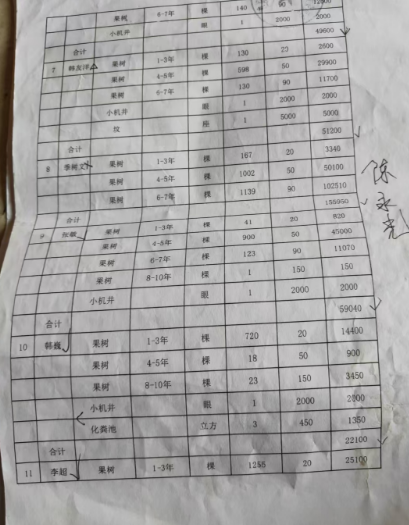 果树 6-7年 棵 140 90 12600
小机井 眼 1 2000 2000
合计 49600
7 果树 1-3年 棵 130 20 2600
果树 4-5年 棵 598 50 29900
果树 6-7年 棵 130 90 11700
小机井 眼 1 2000 2000
坟 座 1 5000 5000
合计 51200
8 果树 1-3年 棵 167 20 3340
果树 4-5年 棵 1002 50 50100
果树 6-7年 棵 1139 90 102510
合计 155950
9 果树 1-3年 棵 41 20 820
果树 4-5年 棵 900 50 45000
果树 6-7年 棵 123 90 11070
果树 8-10年 棵 1 150 150
小机井 眼 1 2000 2000
合计 59040
10 韩巍 果树 1-3年 棵 720 20 14400
果树 4-5年 棵 18 50 900
果树 8-10年 棵 23 150 3450
小机井 眼 1 2000 2000
化粪池 立方 3 450 1350
合计 22100
11 李超 果树 1-3年 棵 1255 20 25100
陈永亮